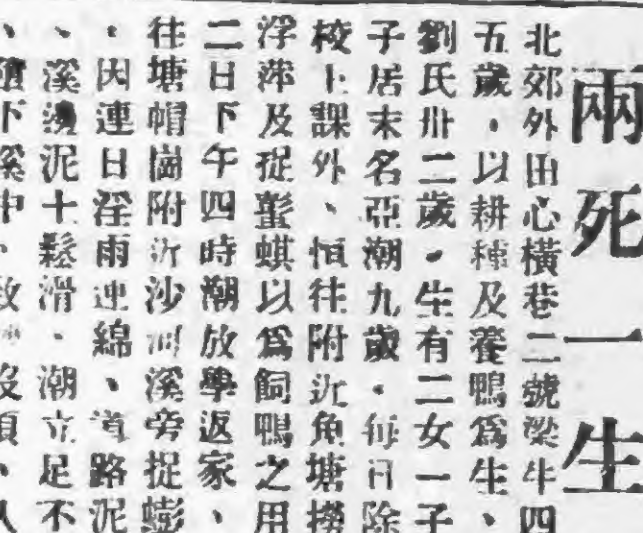 兩死一生
北郊外田心橫巷二號梁牛四
五歲，以耕種及養鴨爲生、
劉氏卅二歲，生有二女一子
子居末名亞潮九歲，每日除
校上課外、恒往附近魚塘撈
浮萍及捉蟚蜞以爲飼鴨之用
二日下午四時潮放學返家、
往塘帽崗附近沙河溪旁捉蟛
，因連日淫雨連綿、道路泥
、溪邊泥土鬆滑，潮立足不
、下溪中、致沒頂、